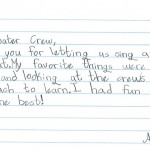 ater Crew,
you for letting us sing a
t. My favorite things were
and looking at the crews
ch to learn. I had fun
he best!
A